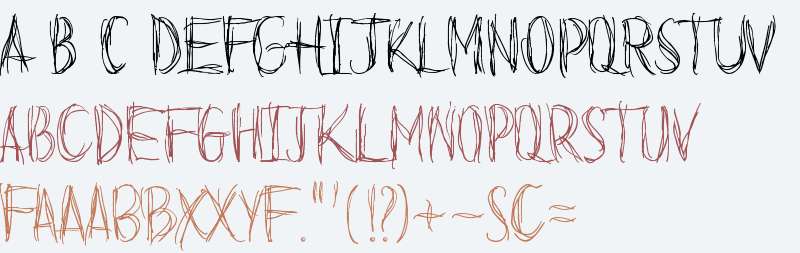 A B C DEFGHIJKLMNOPQRSTUV
ABCDEFGHIJKLMNOPQRSTUV
FAAABBXXYF."'(!?)+-SC=